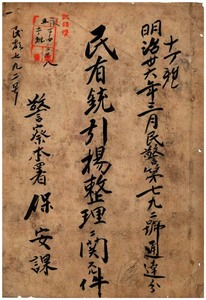 十一號
明治廿六年三月民警第七九二號通達分
民有銃引揚整理ニ関スル件
警察本署保安課
民警七九二号